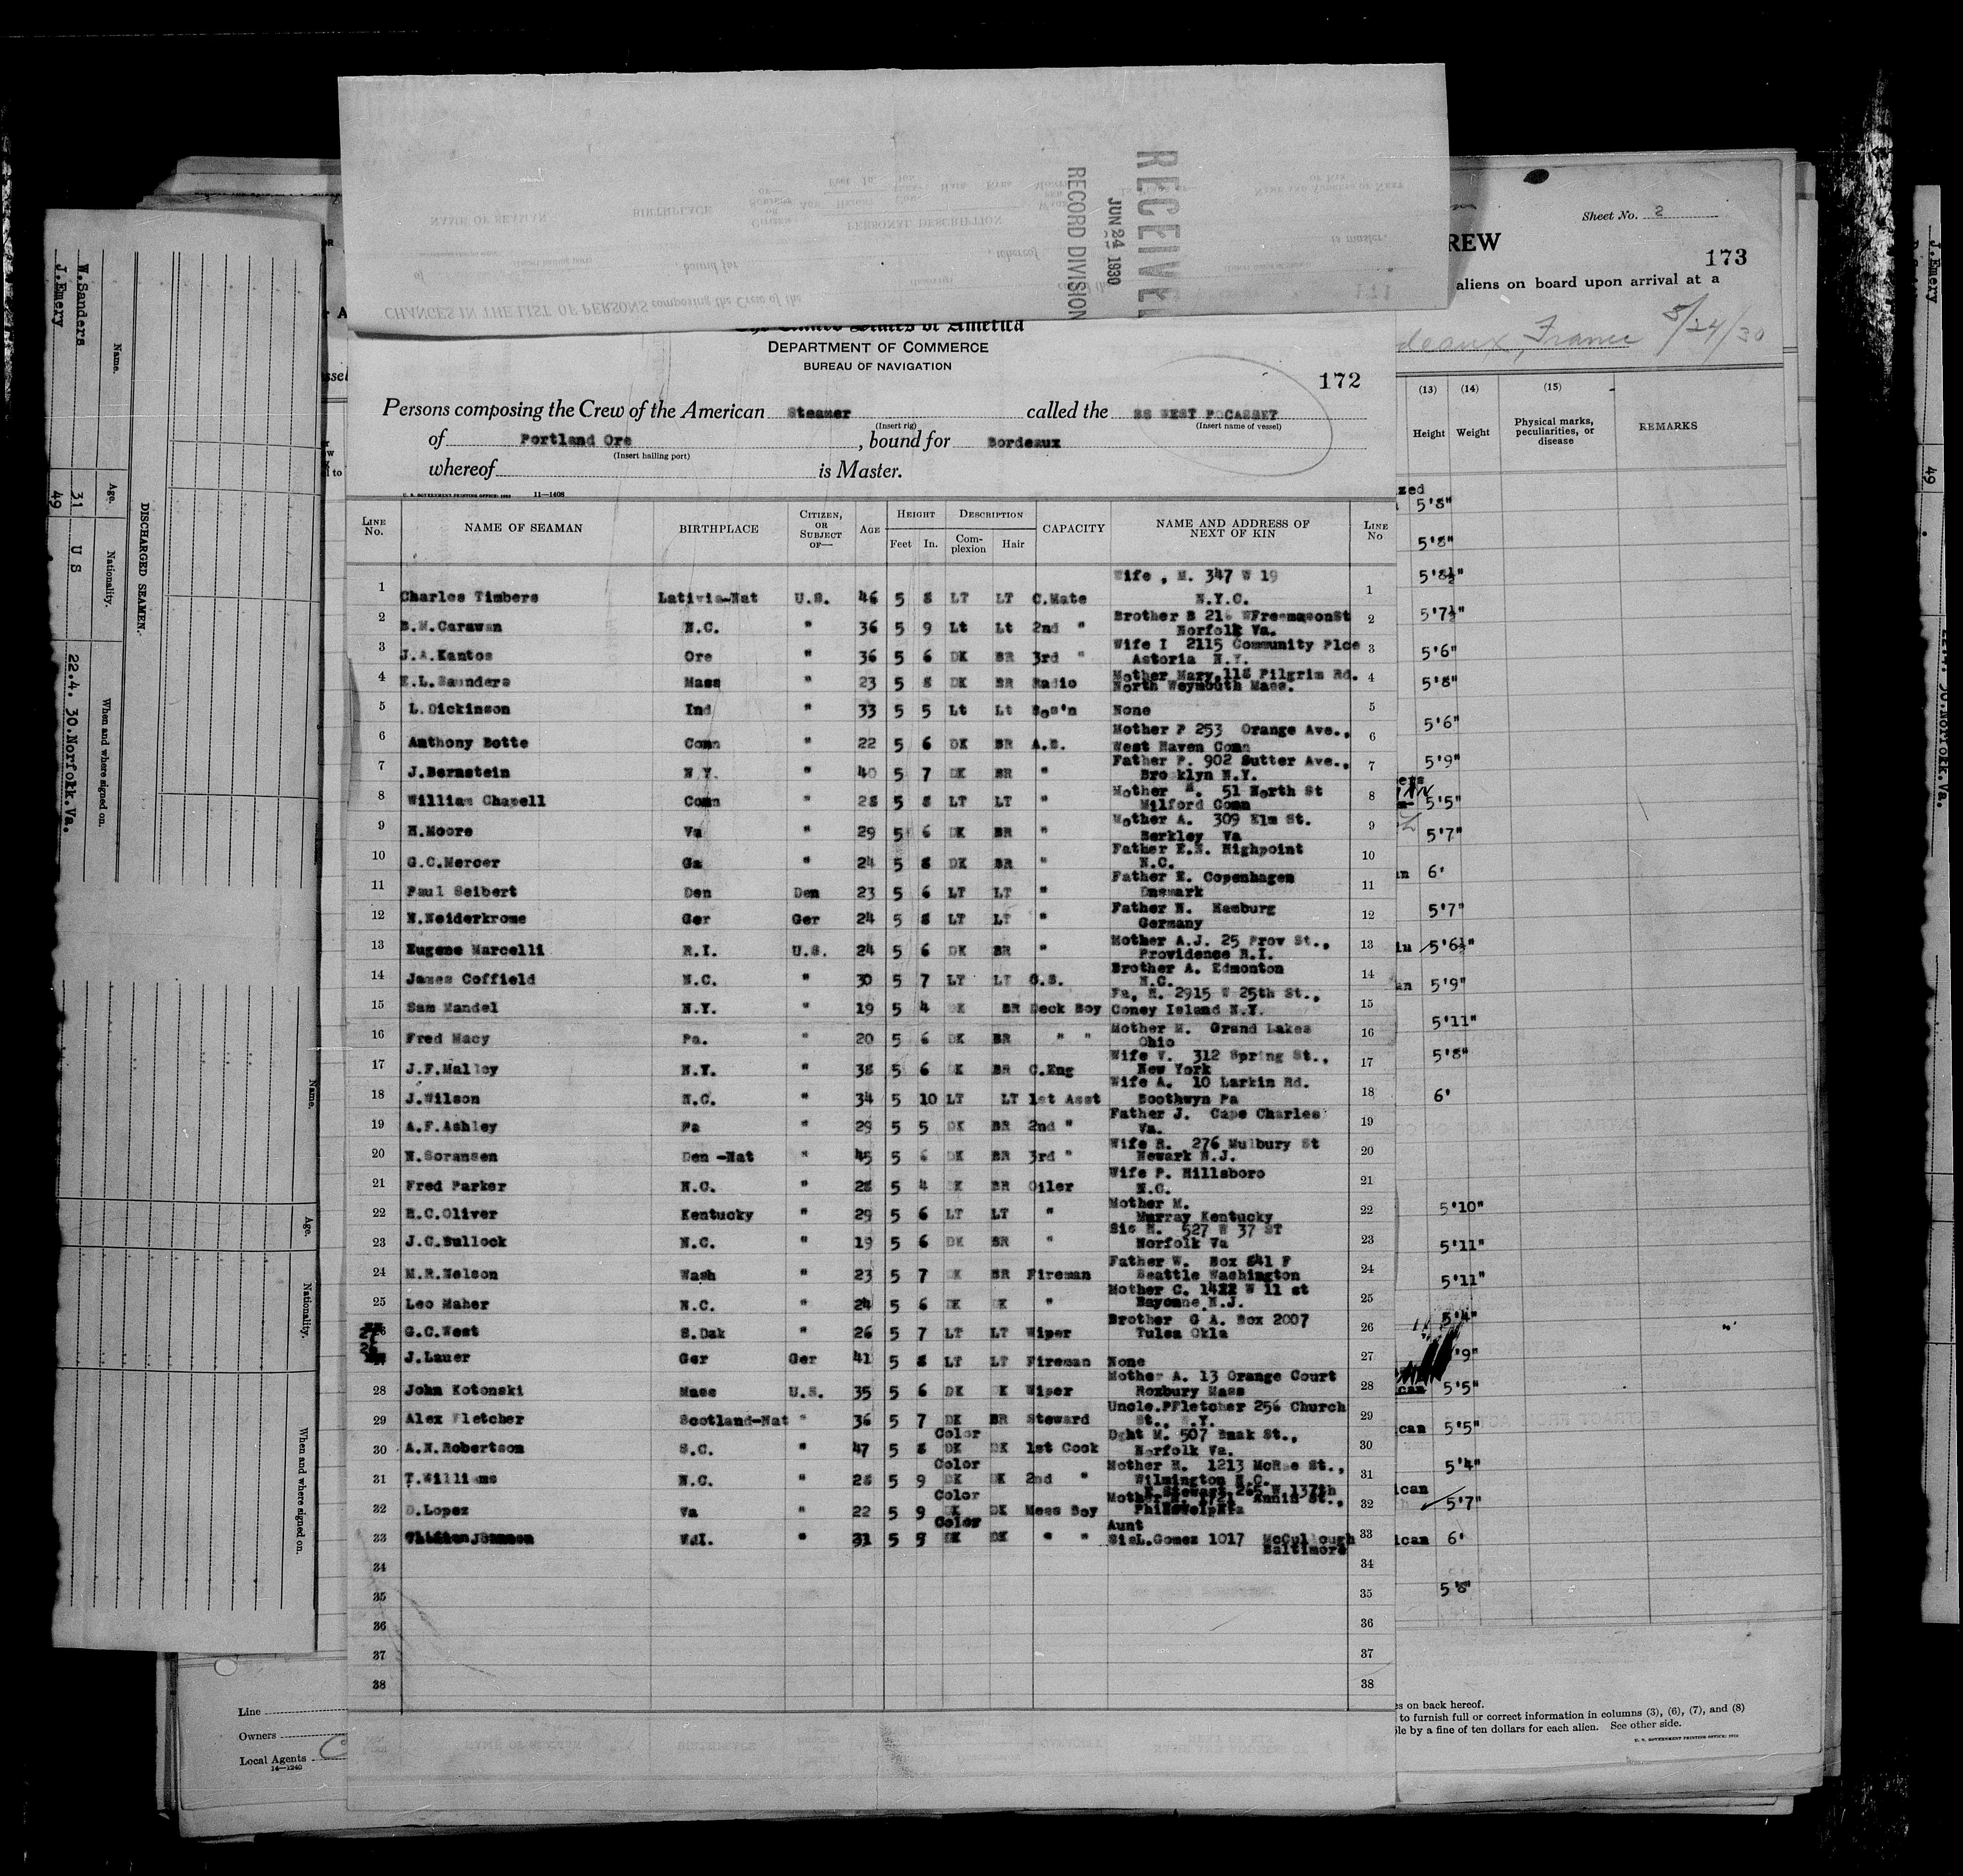 RECEIVED
JUN 24 1930
RECORD DIVISION
CHANGES IN THE LIST OF PERSONS composing the Crew of the
DEPARTMENT OF COMMERCE
BUREAU OF NAVIGATION
172
Persons composing the Crew of the American Steamer called the SS WEST POCASSET
(Insert rig) (Insert name of vessel)
of Portland Ore, bound for Bordeaux
(Insert hailing port)
whereof is Master.
U. S. GOVERNMENT PRINTING OFFICE: 11—1408
LINE No. NAME OF SEAMAN BIRTHPLACE CITIZEN, OR SUBJECT OF— AGE HEIGHT Feet In. DESCRIPTION Complexion Hair CAPACITY NAME AND ADDRESS OF NEXT OF KIN LINE No
1 Charles Timbers Lativia-Nat U.S. 46 5 8 LT LT C.Mate Wife , M. 347 W 19 N.Y.C. 1
2 B.M.Carawan N.C. " 36 5 9 Lt Lt 2nd " Brother B WFreemasonSt Norfolk Va. 2
3 J.A.Kantos Ore " 36 5 6 DK BR 3rd " Wife I 2115 Community Plce Astoria N.Y. 3
4 E.L.Saunders Mass " 23 5 8 DK BR Radio Mother Mary,118 Pilgrim Rd. North Weymouth Mass. 4
5 L.Dickinson Ind " 33 5 5 Lt Lt Bos'n None 5
6 Anthony Botte Conn " 22 5 6 DK BR A.B. Mother P 253 Orange Ave., West Haven Conn 6
7 J.Bernstein N.Y. " 40 5 7 DK BR " Father P. 902 Sutter Ave., Brooklyn N.Y. 7
8 William Chapell Conn " 28 5 8 LT LT " Mother 51 North St Milford Conn 8
9 H.Moore Va " 29 5 6 DK BR " Mother A. 309 Elm St. Berkley Va 9
10 G.C.Mercer Ga " 24 5 8 DK BR " Father E.E. Highpoint N.C. 10
11 Paul Seibert Den Den 23 5 6 LT LT " Father E. Copenhagen Dnemark 11
12 N.Neiderkrome Ger Ger 24 5 8 LT LT " Father N. Hamburg Germany 12
13 Eugene Marcelli R.I. U.S. 24 5 6 DK BR " Mother A.J. 25 Prov St., Providence R.I. 13
14 James Coffield N.C. " 30 5 7 LT LT O.S. Brother A. Edmonton N.C. 14
15 Sam Mandel N.Y. " 19 5 4 DK BR Deck Boy Fa, H. 2915 W 25th St., Coney Island N.Y. 15
16 Fred Macy Pa. " 20 5 6 DK BR " " Mother M. Grand Lakes Ohio 16
17 J.F.Malloy N.Y. " 38 5 6 DK BR C.Eng Wife V. 312 Spring St., New York 17
18 J.Wilson N.C. " 34 5 10 LT LT 1st Asst Wife A. 10 Larkin Rd. Boothwyn Pa 18
19 A.F.Ashley Pa " 29 5 5 DK BR 2nd " Father J. Cape Charles Va. 19
20 N.Soransen Den -Nat " 45 5 6 DK BR 3rd " Wife R. 276 Mulbury St Newark N.J. 20
21 Fred Parker N.C. " 28 5 4 DK BR Oiler Wife P. Hillsboro N.C. 21
22 R.C.Oliver Kentucky " 29 5 6 LT LT " Mother M. Murray Kentucky 22
23 J.C.Bullock N.C. " 19 5 6 DK BR " Sis 527 W 37 ST Norfolk Va 23
24 M.R.Nelson Wash " 23 5 7 DK BR Fireman Father W. Box 841 F Seattle Washington 24
25 Leo Maher N.C. " 24 5 6 DK DK " Mother C. 1422 W 11 st Bayonne N.J. 25
27 G.C.West S.Dak " 26 5 7 LT LT Wiper Brother G A. Box 2007 Tulsa Okla 26
26 J.Lauer Ger Ger 41 5 8 LT LT Fireman None 27
28 John Kotonski Mass U.S. 35 5 6 DK DK Wiper Mother A. 13 Orange Court Roxbury Mass 28
29 Alex Fletcher Scotland-Nat " 36 5 7 DK BR Steward Uncle.PFletcher 256 Church St., N.Y. 29
30 A.N.Robertson S.C. " 47 5 8 Color DK DK 1st Cook Dght M. 507 St., Norfolk Va. 30
31 T.Williams N.C. " 28 5 9 Color DK DK 2nd " Mother H. 1213 McRae St., Wilmington N.C. 31
32 D.Lopez Va " 22 5 9 Color DK DK Mess Boy Mother Annin St., 32
33 31 5 Color DK DK " " Aunt L.Gomez 1017 McCullough Baltimore 33
34 34
35 35
36 36
37 37
38 38
DISCHARGED SEAMEN.
Name. Age. Nationality. When and where signed on.
W.Sanders 31 U S
J.Emery 49 22.4. 30.Norfokk.Va.
Name. Age. Nationality. When and where signed on.
Line
Owners
Local Agents
14—1240
Sheet No. 2
REW
173
aliens on board upon arrival at a
deaux, France 5/24/30
(13) (14) (15)
Height Weight Physical marks, peculiarities, or disease REMARKS
zed
5'8"
5'8"
5'8½"
5'7½"
5'6"
5'8"
5'6"
5'9"
5'5"
5'7"
6'
5'7"
5'6½"
5'9"
5'11"
5'8"
6'
5'10"
5'11"
5'11"
5'4"
'9"
can 5'5"
ican 5'5"
5'4"
ican 5'7"
ican 6'
5'8"
es on back hereof.
to furnish full or correct information in columns (3), (6), (7), and (8)
le by a fine of ten dollars for each alien. See other side.
J.Emery 49